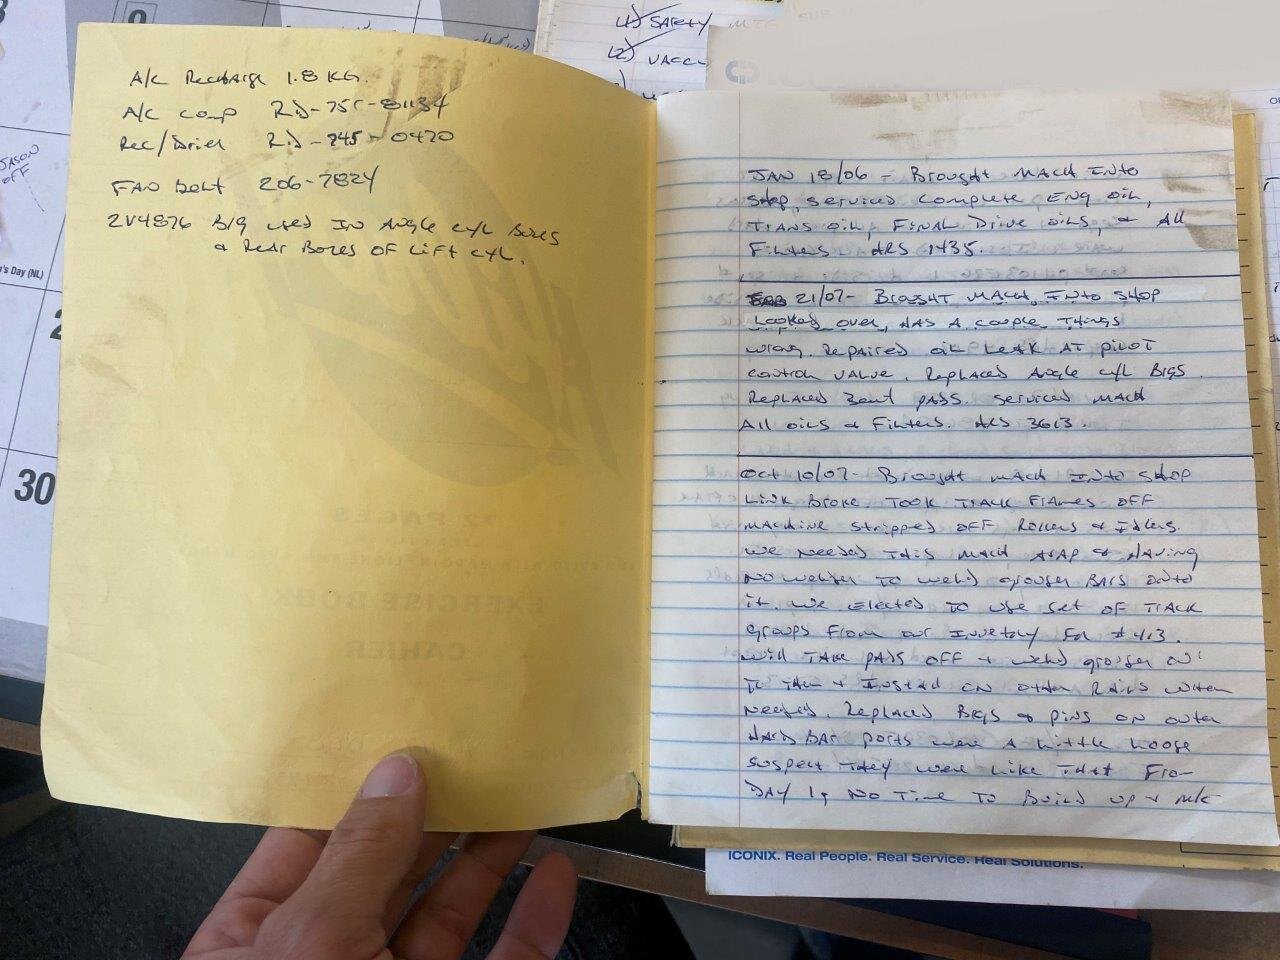 A/C Recharge 1.8 KG.
A/C comp RD-755-81134
Rec/Drier RD-245-0420
FAN belt 206-7824
2V4876 BRG used IN Angle cyl Bores
& Rear Bores OF Lift cyl.
JAN 18/06 - Brought MACH INto
shop, serviced complete ENG oil,
TRANS oil, FINAL Drive oils, & All
Filters. HRS 1435.
FEB 21/07- Brought MACH INto SHOP
Looked over, HAS A couple THINGS
wrong. Repaired oil Leak AT pilot
control valve. Replaced Angle cyl BRGS.
Replaced Bent pads. Serviced MACH
All oils & Filters. HRS 3613.
Oct 10/07- Brought mach INto SHOP
Link Broke. TOOK TRACK Frames OFF
machine stripped OFF Rollers & Idlers.
we needed THIS MACH ASAP & Having
NO welder TO weld grouser BARS onto
it. We elected TO use set OF TRACK
groups From our Inventory For #413.
will TAKE pads OFF & weld grouser on
To them & Install on other Rails when
needed. Replaced BRGS & pins ON outer
Hard BAR ports were A Little Loose
suspect They were Like THAT From
DAY 1, NO Time TO Build up &
30
JASON
OFF
's Day (NL)
SAFETY
ICONIX. Real People. Real Service. Real Solutions.
12 PAGES
EXERCISE BOOK
CAHIER